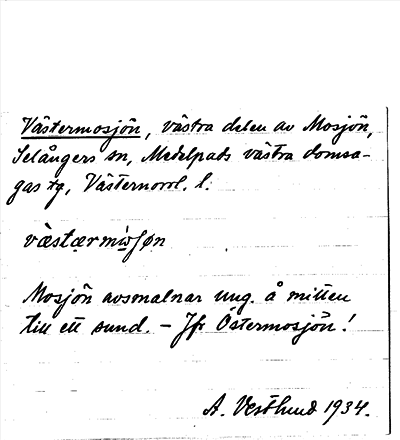 Västermosjön, västra delen av Mosjön,
Selångers sn, Medelpads västra domsa-
gas tg, Västernorrl. l.
væ̀stærmẁʃøn
Mosjön avsmalnar ung. å mitten
till ett sund. – Jfr Östermosjön!
A. Vestlund 1934.